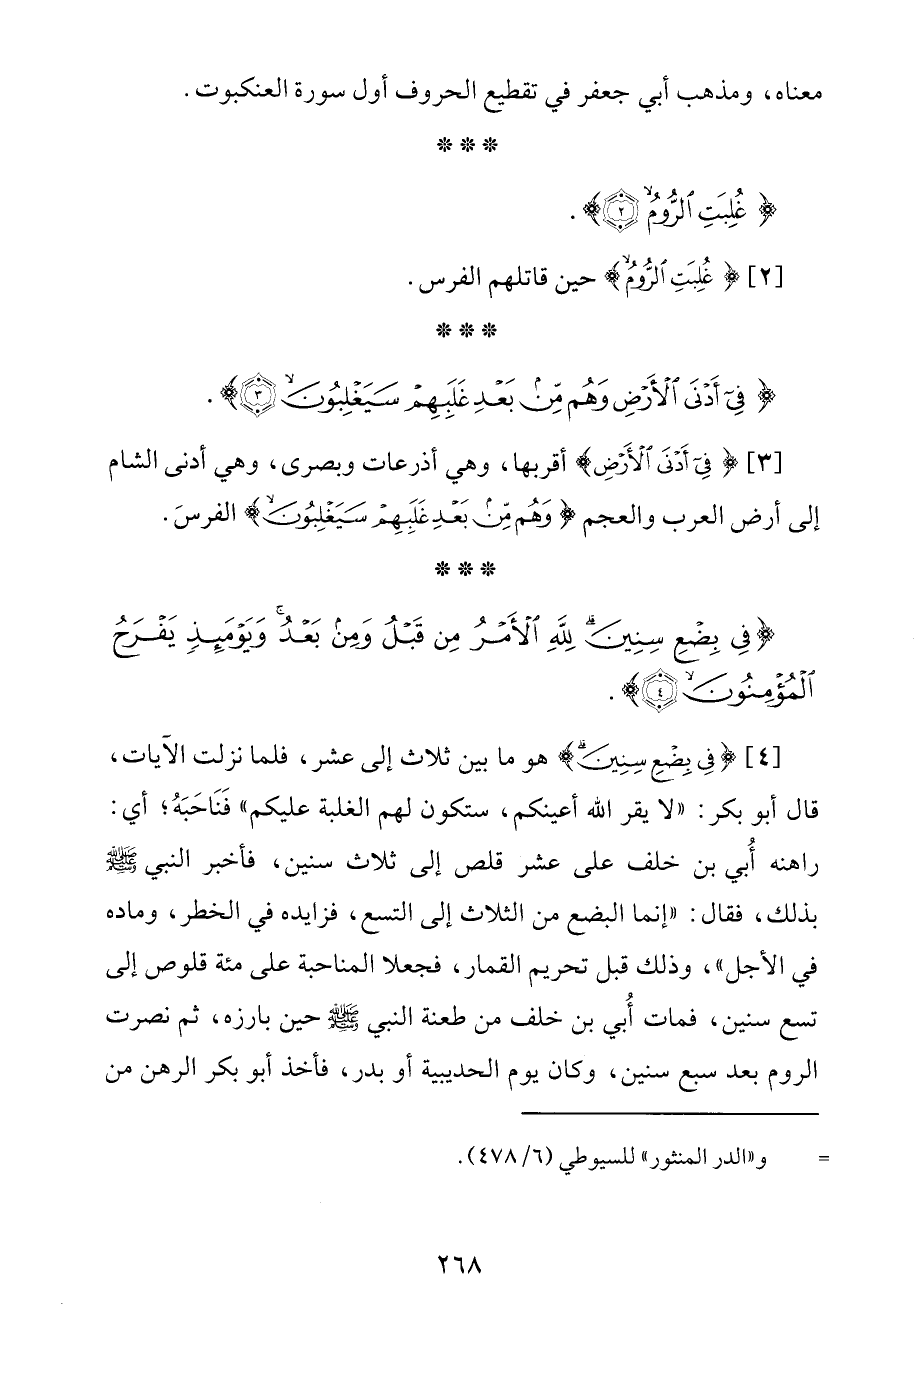 معناه، ومذهب أبي جعفر في تقطيع الحروف أول سورة العنكبوت.
* * *
﴿غُلِبَتِ ٱلرُّومُ ۙ ٢﴾.
[٢] ﴿غُلِبَتِ ٱلرُّومُ ۙ﴾ حين قاتلهم الفرس.
* * *
﴿فِىٓ أَدْنَى ٱلْأَرْضِ وَهُم مِّنۢ بَعْدِ غَلَبِهِمْ سَيَغْلِبُونَ ۙ ٣﴾.
[٣] ﴿فِىٓ أَدْنَى ٱلْأَرْضِ﴾ أقربها، وهي أذرعات وبصرى، وهي أدنى الشام
إلى أرض العرب والعجم ﴿وَهُم مِّنۢ بَعْدِ غَلَبِهِمْ سَيَغْلِبُونَ ۙ﴾ الفرسَ.
* * *
﴿فِى بِضْعِ سِنِينَ ۗ لِلَّهِ ٱلْأَمْرُ مِن قَبْلُ وَمِنۢ بَعْدُ ۚ وَيَوْمَئِذٍ يَفْرَحُ
ٱلْمُؤْمِنُونَ ۙ ٤﴾.
[٤] ﴿فِى بِضْعِ سِنِينَ ۗ﴾ هو ما بين ثلاث إلى عشر، فلما نزلت الآيات،
قال أبو بكر: «لا يقر الله أعينكم، ستكون لهم الغلبة عليكم» فَنَاحَبَهُ؛ أي:
راهنه أُبي بن خلف على عشر قلص إلى ثلاث سنين، فأخبر النبي ﷺ
بذلك، فقال: «إنما البضع من الثلاث إلى التسع، فزايده في الخطر، وماده
في الأجل»، وذلك قبل تحريم القمار، فجعلا المناحبة على مئة قلوص إلى
تسع سنين، فمات أُبي بن خلف من طعنة النبي ﷺ حين بارزه، ثم نصرت
الروم بعد سبع سنين، وكان يوم الحديبية أو بدر، فأخذ أبو بكر الرهن من
= و«الدر المنثور» للسيوطي (٦/ ٤٧٨).
٢٦٨